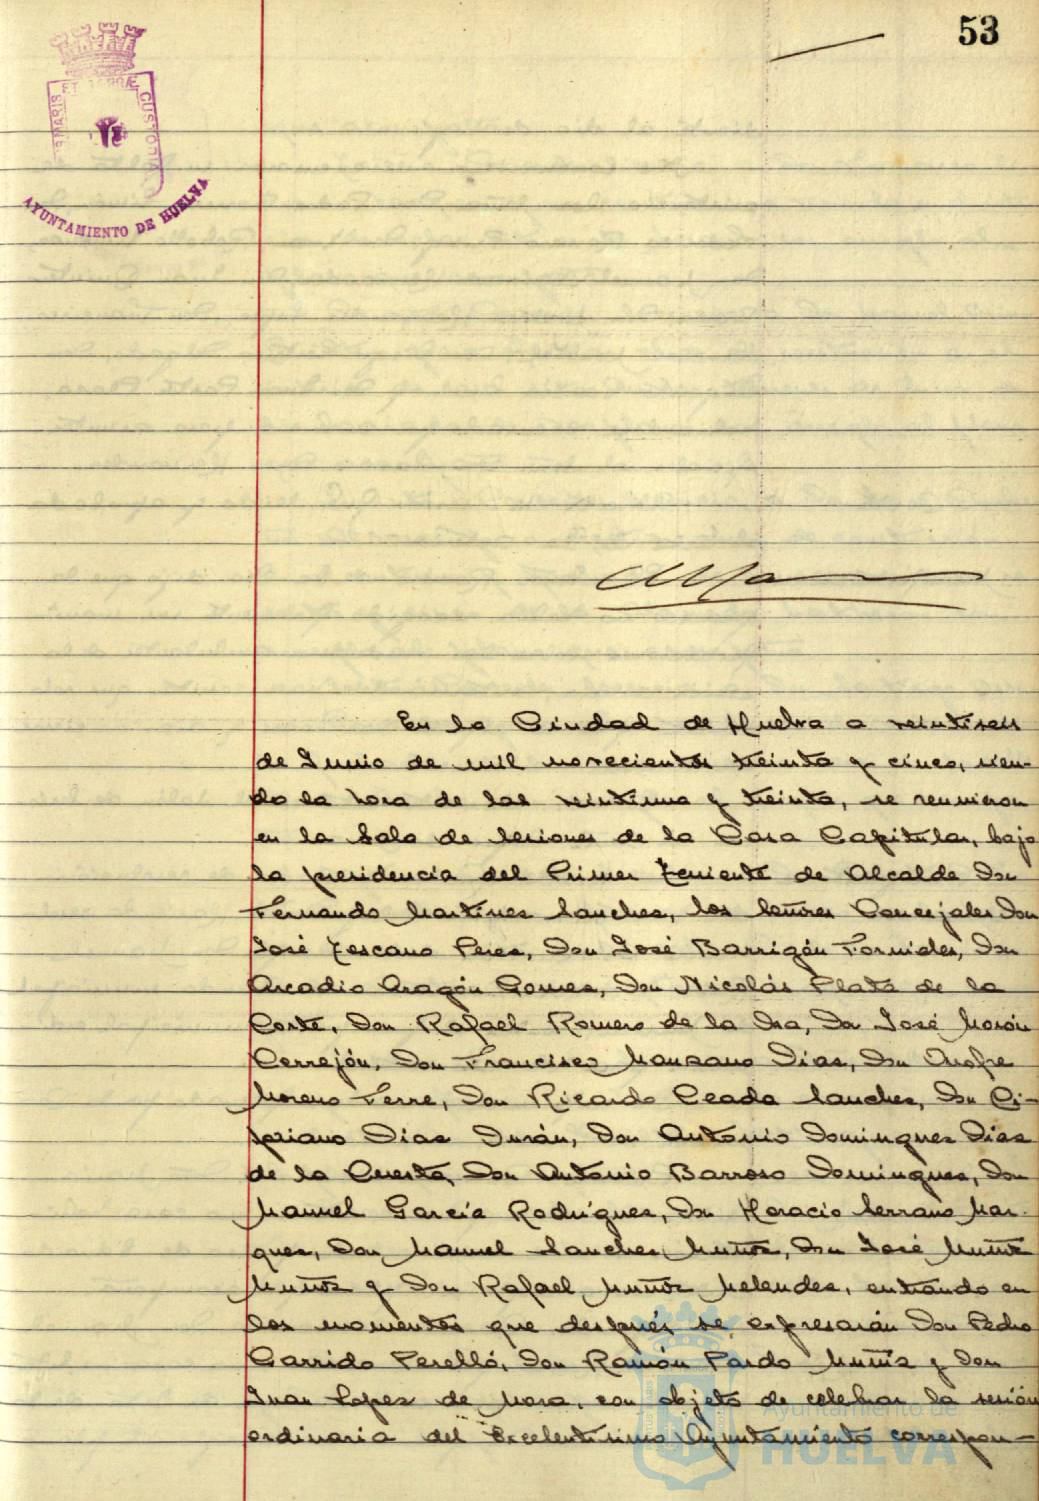 53
PORTUS MARIS ET TERRAE CUSTODIA
AYUNTAMIENTO DE HUELVA
En la Ciudad de Huelva a veintiseis
de Junio de mil novecientos treinta y cinco, sien-
do la hora de las veintiuna y treinta, se reunieron
en la Sala de Sesiones de la Casa Capitular, bajo
la presidencia del Primer Teniente de Alcalde Don
Fernando Martinez Sanchez, los Señores Concejales Don
José Tescano Perez, Don José Barrigón Fornieles, Don
Arcadio Aragón Gomez, Don Nicolás Plata de la
Corte, Don Rafael Romero de la Osa, Don José Morón
Cerrejón, Don Francisco Manzano Dias, Don Onofre
Moreno Ferre, Don Ricardo Ceada Sanchez, Don Ci-
priano Dias Durán, Don Antonio Dominguez Dias
de la Cuesta, Don Antonio Barroso Dominguez, Don
Manuel García Rodriguez, Don Horacio Serrano Mar-
quez, Don Manuel Sanchez Muñoz, Don José Muñiz
Muñoz y Don Rafael Muñoz Melendez, entrando en
los momentos que después se expresarán Don Pedro
Garrido Perelló, Don Ramón Pardo Muñiz y Don
Juan Lopez de Mora, con objeto de celebrar la sesión
ordinaria del Excelentisimo Ayuntamiento correspon-
Ayuntamiento de
HUELVA